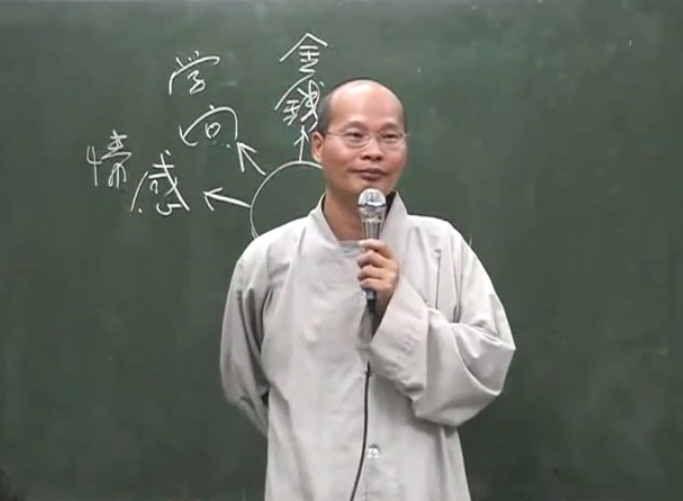 金錢
学问
情感